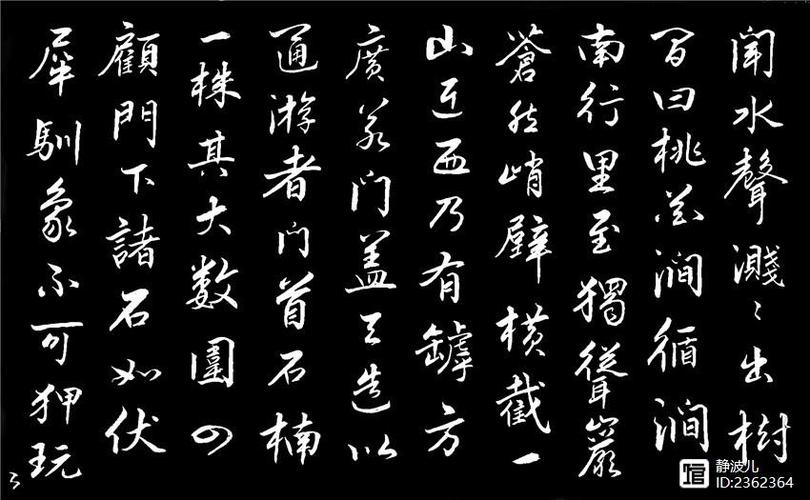 聞水聲濺〻出樹
間曰桃花澗循澗
南行里至獨聳巖
蒼然峭壁橫截一
山近西乃有罅方
廣若門蓋天造以
通游者門首石楠
一株其大數圍四
顧門下諸石如伏
犀馴象不可狎玩
静波儿
ID:2362364